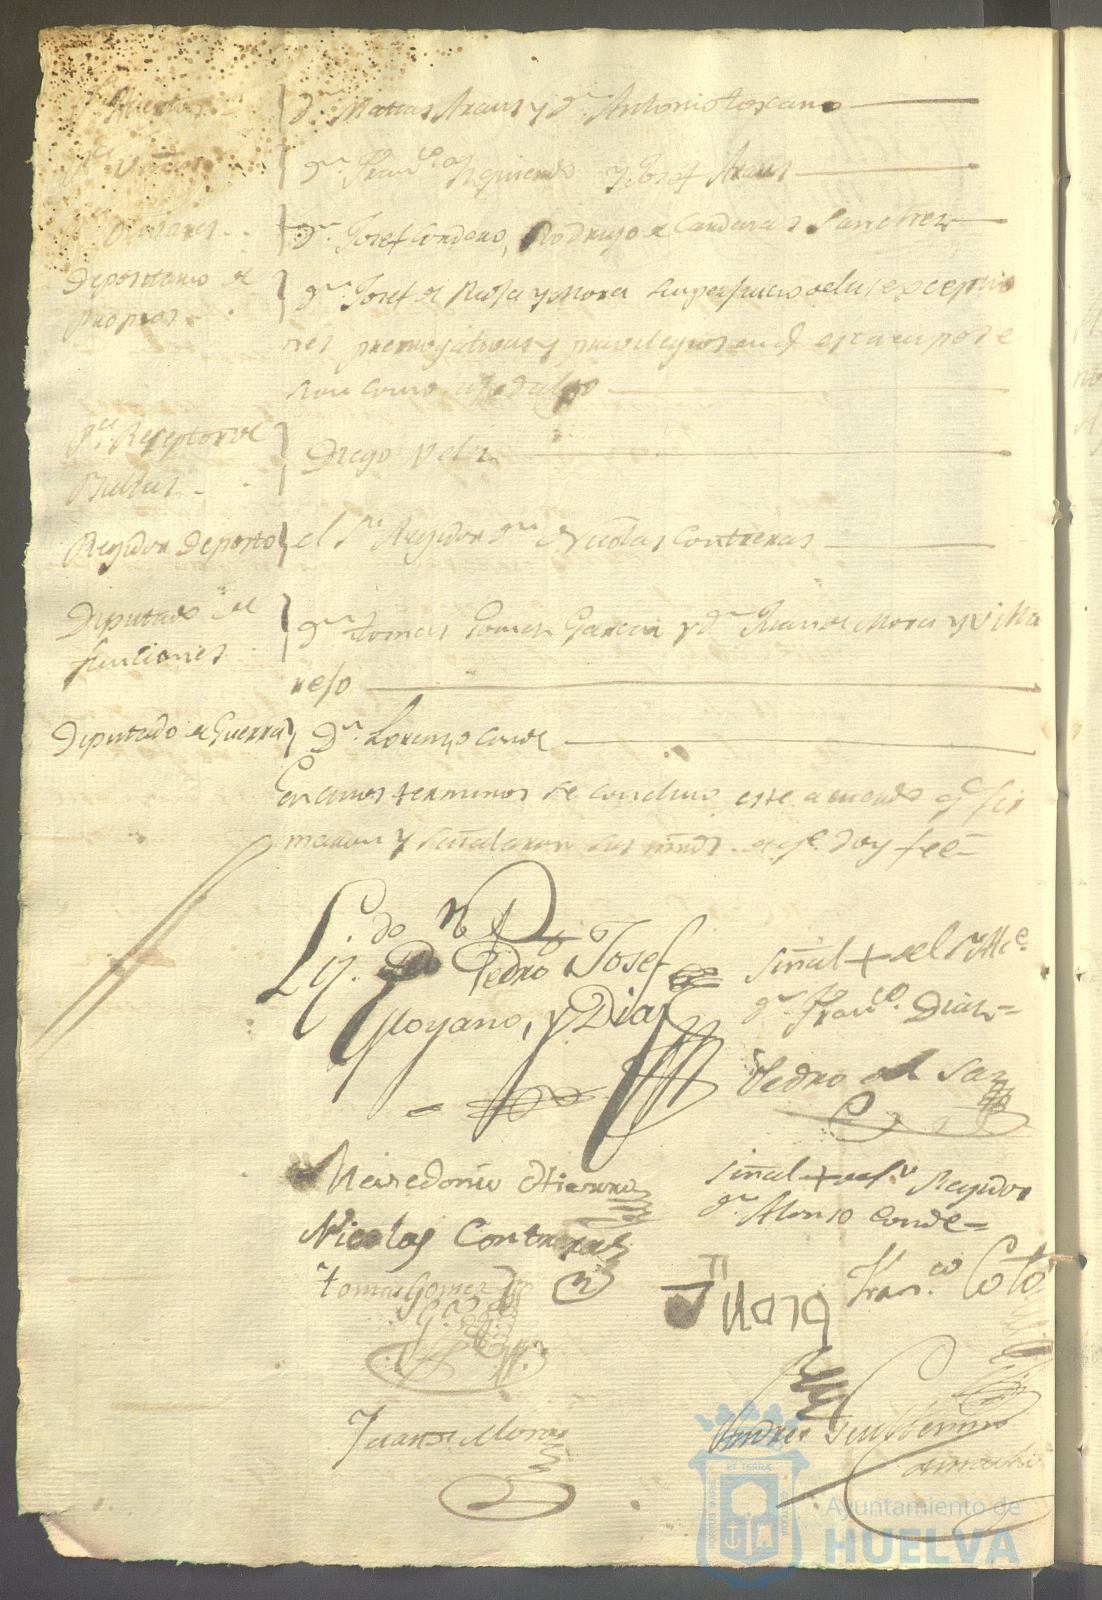 Dn. Matias Araus y Dn. Antonio toscano
Dn. Franco. Ysquierdo y Josef Araus
Dn. Josef Cordero, Rodrigo de Cardenas Sanchez
Depositario de Propios
Dn. Josef de Rioja y Mora sin perjuicio de las excepcio
nes prerrogativas y privilegios en q. esta en pose
sion como
Receptor de Bulas
Diego Velez
Regidor Deposto
el Sr. Regidor Dn. Nicolas Contreras
Diputado de funciones
Dn. tomas Gomez Garcia y Dn. Juan de Mora y Villa
rejo
Diputado de Guerra
Dn. Lorenzo Conde
En cuios terminos se concluio este acuerdo qe. fir
maron y señalaron sus mrds. de qe. doy feè=
Liz.do Dn. Pedro Josef
Moyano, y Diaz
señal + del Sr. Alce.
Dn. Franco. Diaz=
Pedro del Saz
Nicolas Contreras
señal + del Sr. Regidor
Dn. Alonso Conde=
tomas Gomez
Ga.
Fran.co Coto
Juan de Mora
Andres
Ayuntamiento de
HUELVA